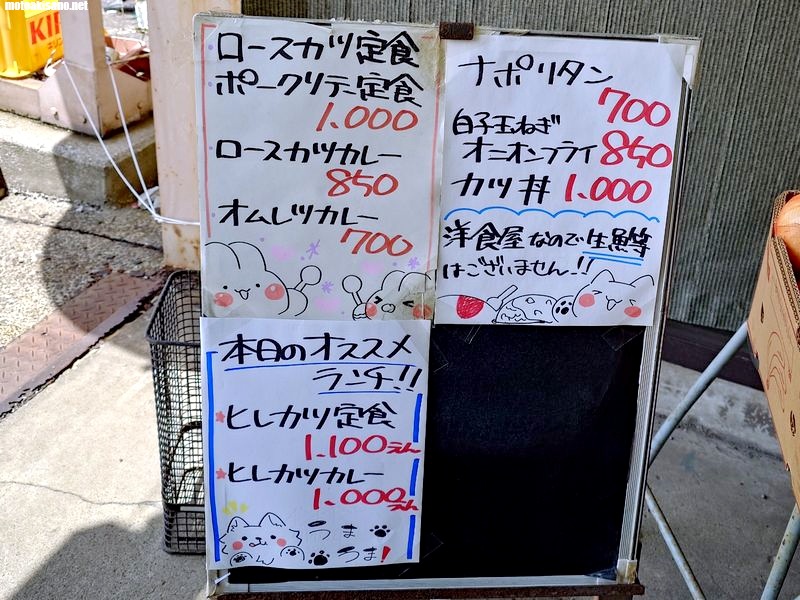 motoakasano.net
KIRI
ロースカツ定食
ポークソテー定食
1.000
ロースカツカレー
850
オムレツカレー
700
ナポリタン
700
白子玉ねぎ
オニオンフライ 850
カツ丼 1.000
洋食屋なので生鮮等
はございません!!
本日のオススメ
ランチ!!
★ヒレカツ定食
1.100えん
★ヒレカツカレー
1.000えん
うま
うま!